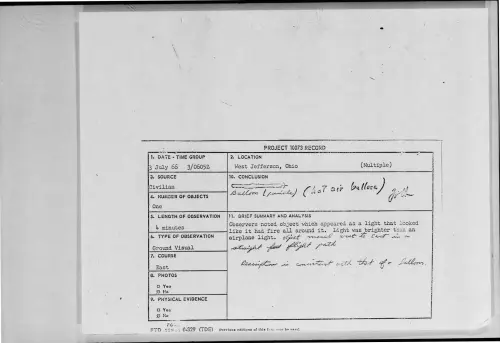 PROJECT 10073 RECORD
1. DATE - TIME GROUP
3 July 66 3/0605Z
2. LOCATION
West Jefferson, Ohio (Multiple)
3. SOURCE
Civilian
10. CONCLUSION
Balloon (hot air balloon)
4. NUMBER OF OBJECTS
One
5. LENGTH OF OBSERVATION
4 minutes
11. BRIEF SUMMARY AND ANALYSIS
Observers noted object which appeared as a light that looked
like it had fire all around it. Light was brighter than an
airplane light. object moved west to east in a
straight flight path
Description is consistent with that of a balloon.
6. TYPE OF OBSERVATION
Ground Visual
7. COURSE
East
8. PHOTOS
□ Yes
☒ No
9. PHYSICAL EVIDENCE
□ Yes
☒ No
FTD 0-329 (TDE) Previous editions of this form may be used.